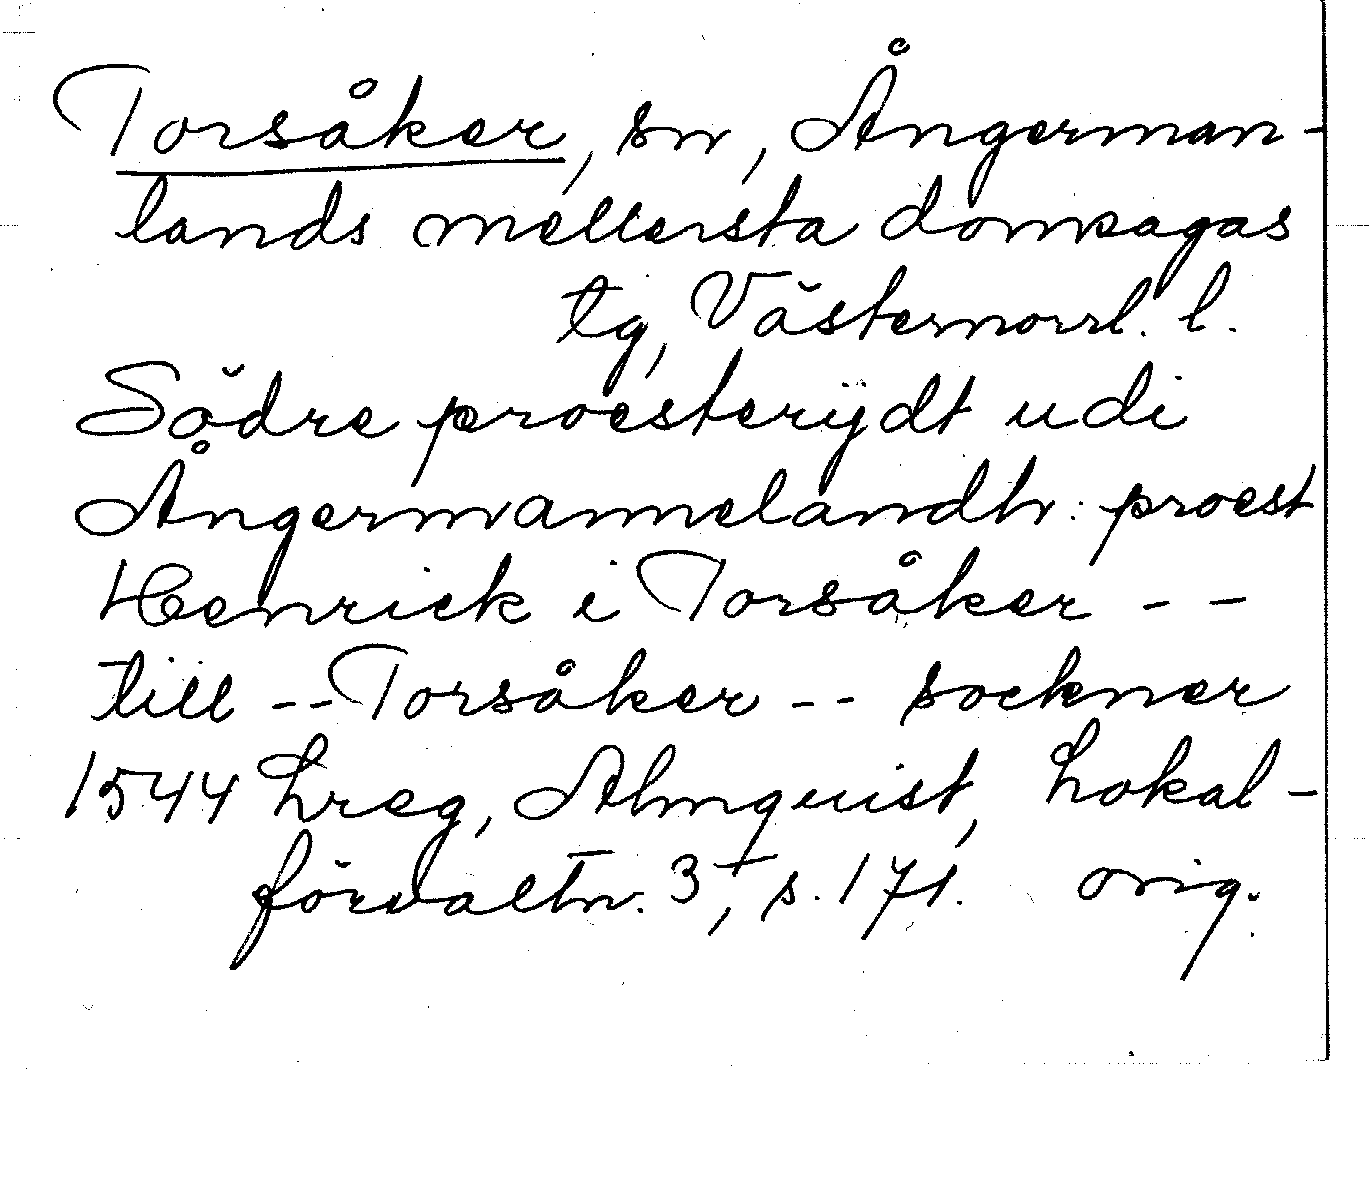 Torsåker, sn, Ångerman-
lands mellersta domsagas
tg, Västernorrl. l.
Södre proesterÿdt udi
Ångermannelandh: proest
Henrick i Torsåker - -
till - - Torsåker - - sockner
1544 hreg, Almquist, Lokal-
förvaltn. 3, s. 171. orig.